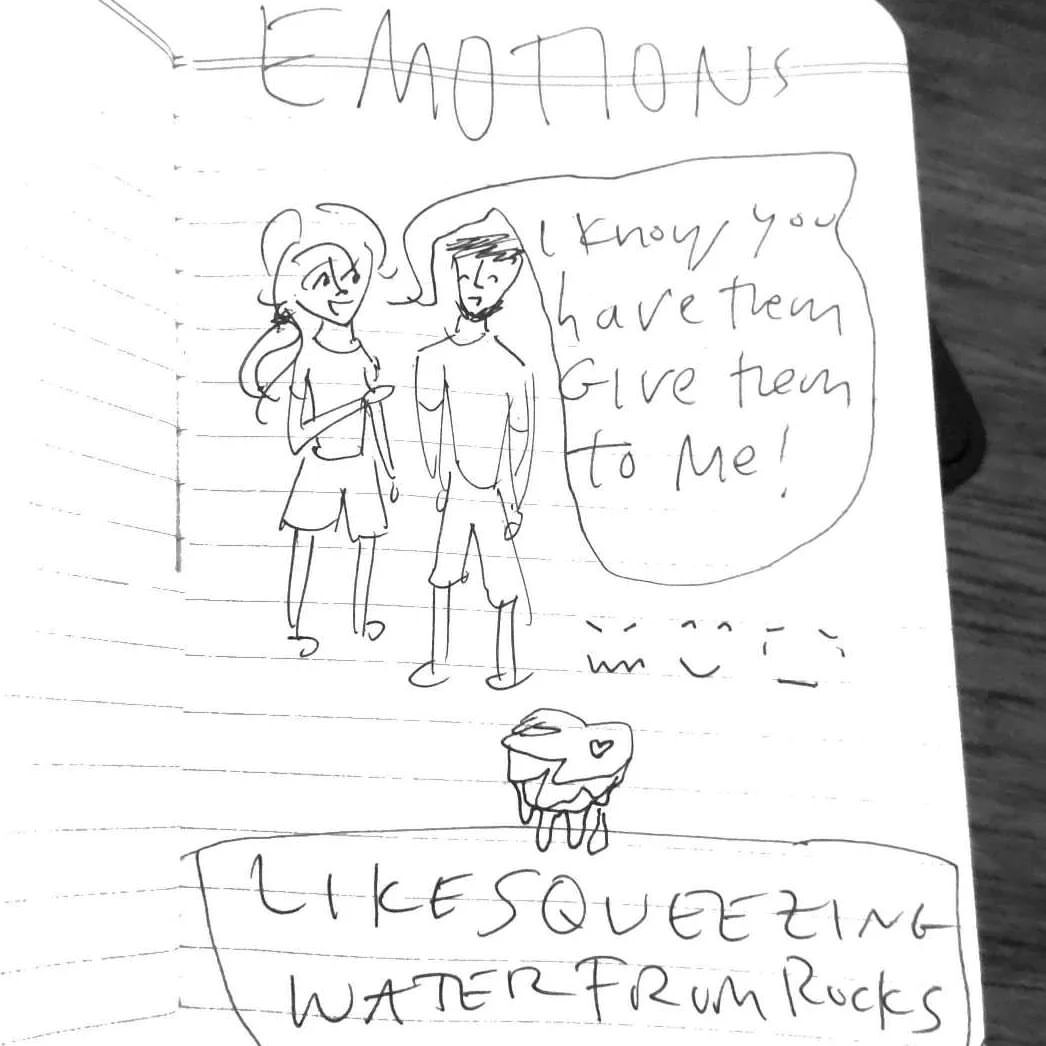 EMOTIONS
I know you
have them
GIve them
to Me!
LIKE SQUEEZING
WATER FROM ROCKS